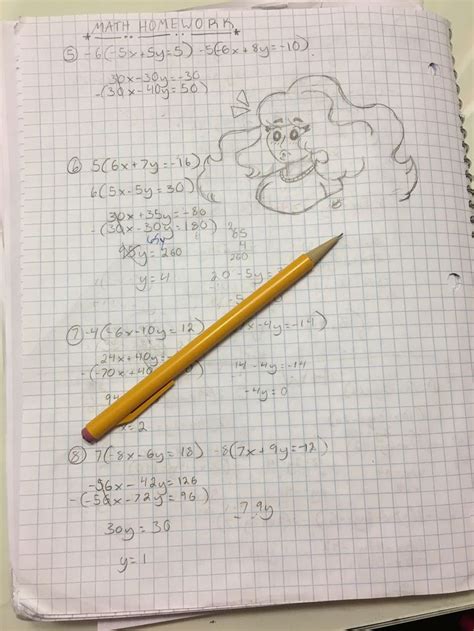 MATH HOMEWORK
⑤ -6(-5x+5y=5) -5(-6x+8y=-10)
30x-30y=-30
-(30x-40y=50)
⑥ 5(6x+7y=-16)
6(5x-5y=30)
30x+35y=-80
-(30x-30y=180)
65y
y=260
65
4
260
y=4
-5y=
⑦ -4(-6x-10y=12) x-4y=-14)
24x+40y=
-(-70x+40
14-4y=-14
-4y=0
x=2
⑧ 7(-8x-6y=18) -8(7x+9y=-12)
-56x-42y=126
-(-56x-72y=96)
-7.9y
30y=30
y=1